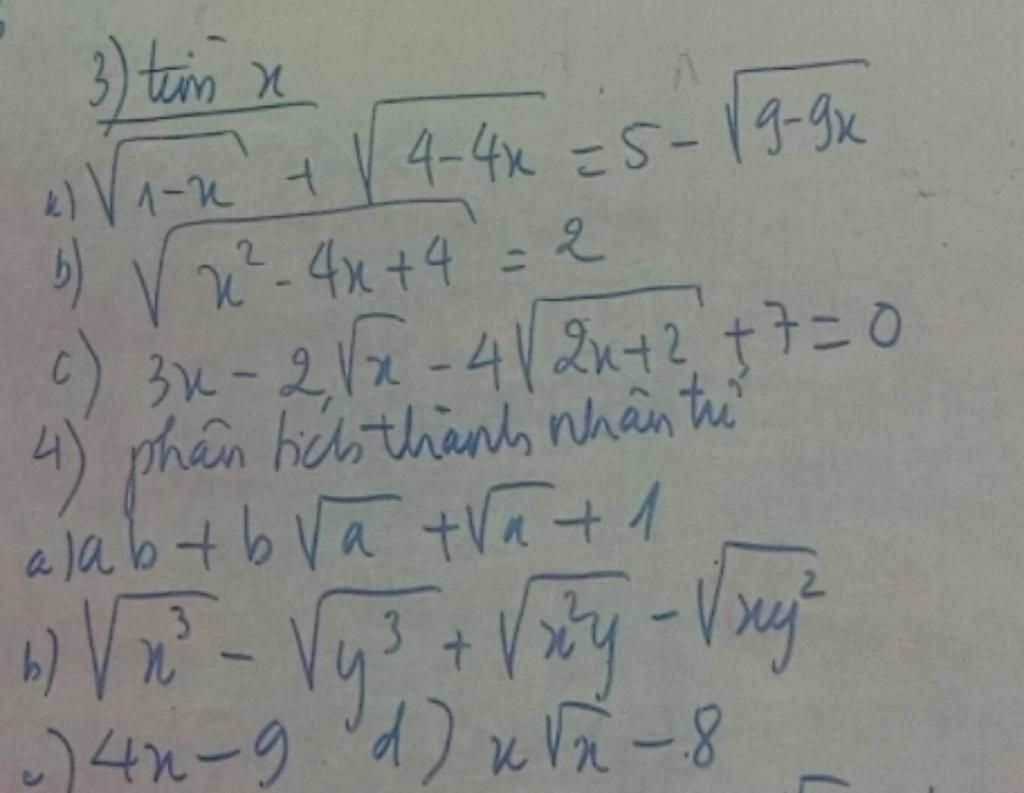 3) tìm x
a) √(1-x) + √(4-4x) = 5 - √(9-9x)
b) √(x²-4x+4) = 2
c) 3x - 2√x - 4√(2x+2) + 7 = 0
4) phân tích thành nhân tử
a) ab + b√a + √a + 1
b) √x³ - √y³ + √x²y - √xy²
c) 4x - 9 d) x√x - 8